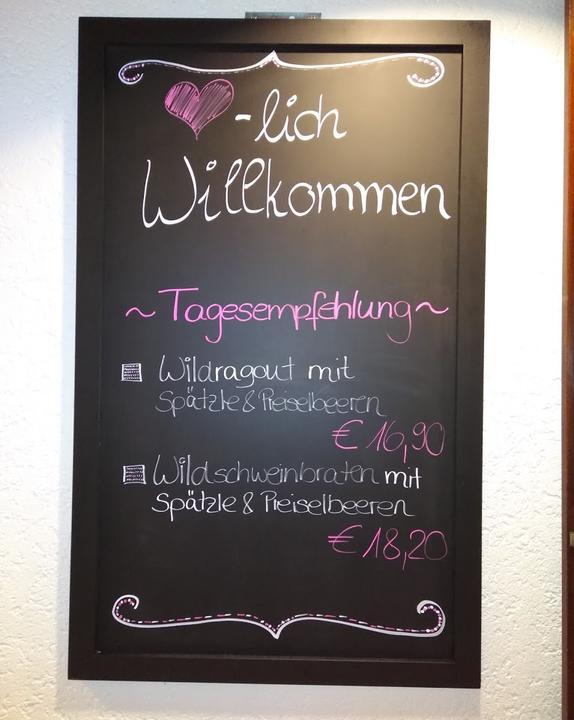 ♥-lich
Willkommen
~ Tagesempfehlung ~
Wildragout mit
Spätzle & Preiselbeeren
€ 16,90
Wildschweinbraten mit
Spätzle & Preiselbeeren
€ 18,20